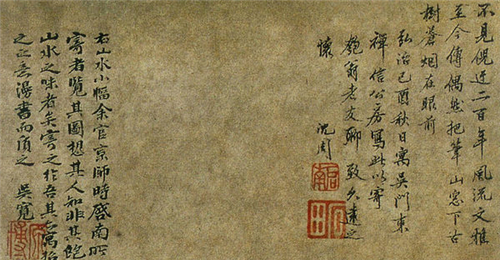 不見倪迂二百年風流文雅
至今傳偶然把筆山窓下古
樹蒼烟在眼前
弘治己酉秋日寓吳門東
禪信公房寫此以寄
匏翁老友聊致久遠之
懷 沈周
右山水小幅余官京師時啓南所
寄者覽其圖想其人知非其飽
山水之味者
意漫書而 之 吳寬